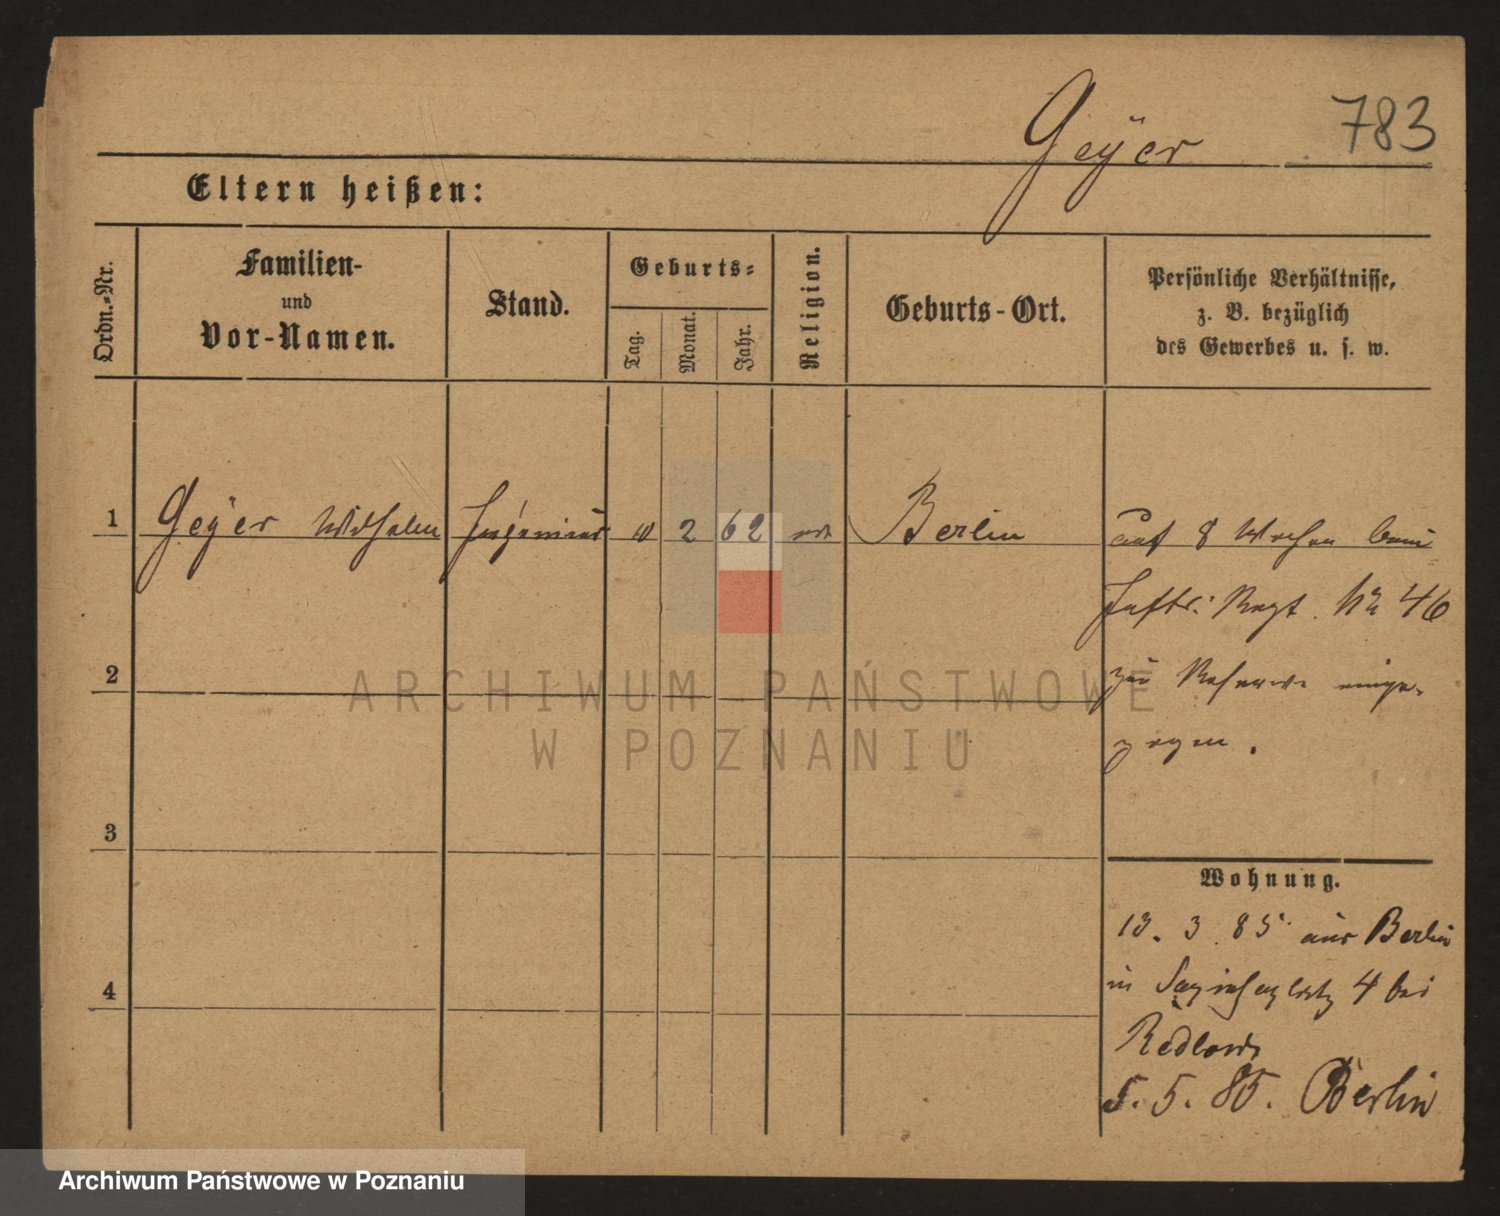 Geÿer 783
Eltern heißen:
Ordn.-Nr.
Familien-
und
Vor-Namen.
Stand.
Geburts-
Tag.
Monat.
Jahr.
Religion.
Geburts-Ort.
Persönliche Verhältnisse,
z. B. bezüglich
des Gewerbes u. s. w.
1 Geÿer Wilhelm Ingenieur 10 2 62 Berlin auf 8 Wochen beim
Inftr: Regt. No 46
zur Reserve einge-
zogen.
2
3
4
ARCHIWUM PAŃSTWOWE
W POZNANIU
Wohnung.
13. 3. 85 aus Berlin
in Sapiehaplatz 4 bei
5. 5. 85. Berlin
Archiwum Państwowe w Poznaniu